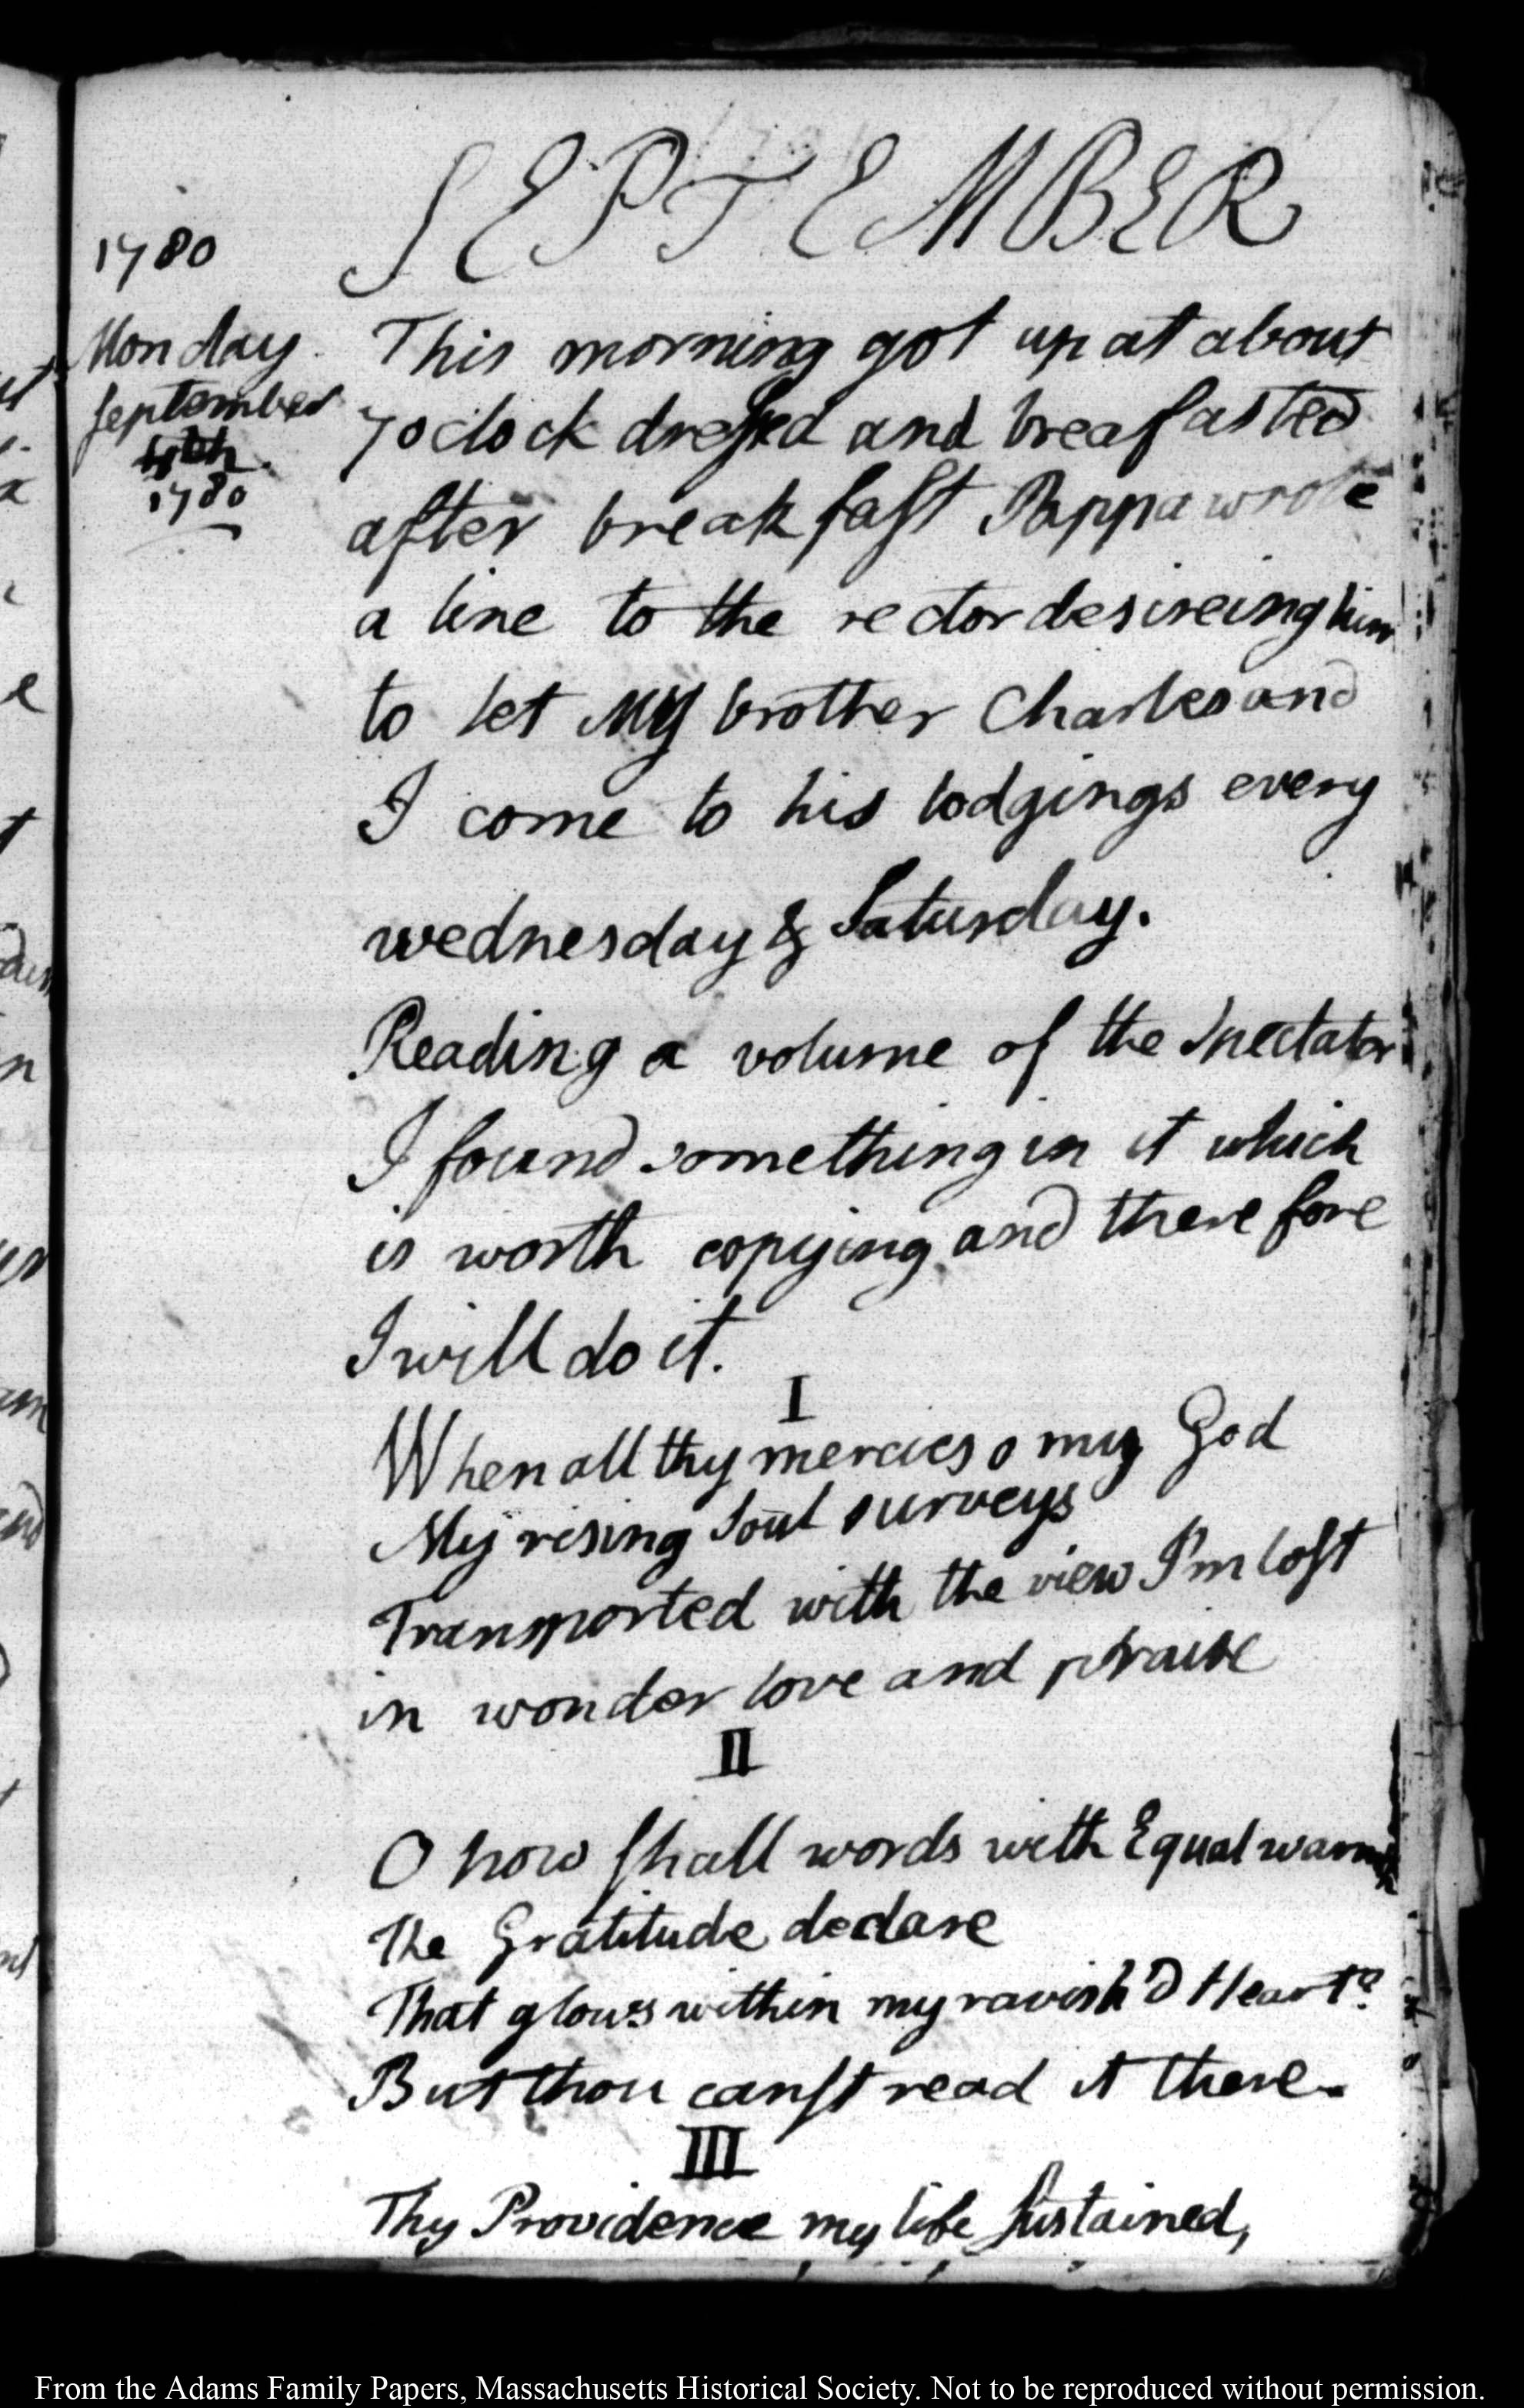 SEPTEMBER
1780
Monday
September
1780
This morning got up at about
7 oclock dressed and breafasted
after breakfast Pappa wrote
a line to the rector desireing him
to let my brother Charles and
I come to his lodgings every
wednesday & Saturday.
Reading a volume of the Spectator
I found something in it which
is worth copying and therefore
I will do it.
I
When all thy mercies o my God
My rising Soul surveys
Transported with the view I'm lost
in wonder love and praise
II
O how shall words with Equal warmth
The Gratitude declare
That glows within my ravish'd Heart?
But thou canst read it there.
III
Thy Providence my life Sustained,
From the Adams Family Papers, Massachusetts Historical Society. Not to be reproduced without permission.